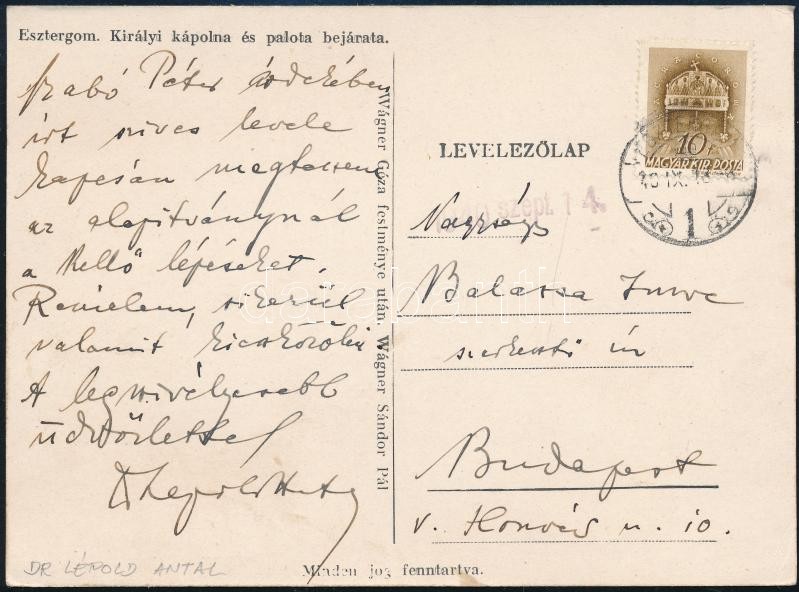 Esztergom. Királyi kápolna és palota bejárata.
Szabó Péter érdekében
írt szíves levele
kapcsán megteszem
az alapítványnál
a kellő lépéseket.
Remélem, sikerül
valamit kieszközölni
A legszívélyesebb
üdvözlettel
DR LÉPOLD ANTAL
Wágner Géza festménye után. Wágner Sándor Pál
Minden jog fenntartva.
LEVELEZŐLAP
szept. 14.
Nagys.
Balassa Imre
szerkesztő úr
Budapest
V. Honvéd u. 10.
MAGYAR KIR. POSTA
10f
1
darabanth